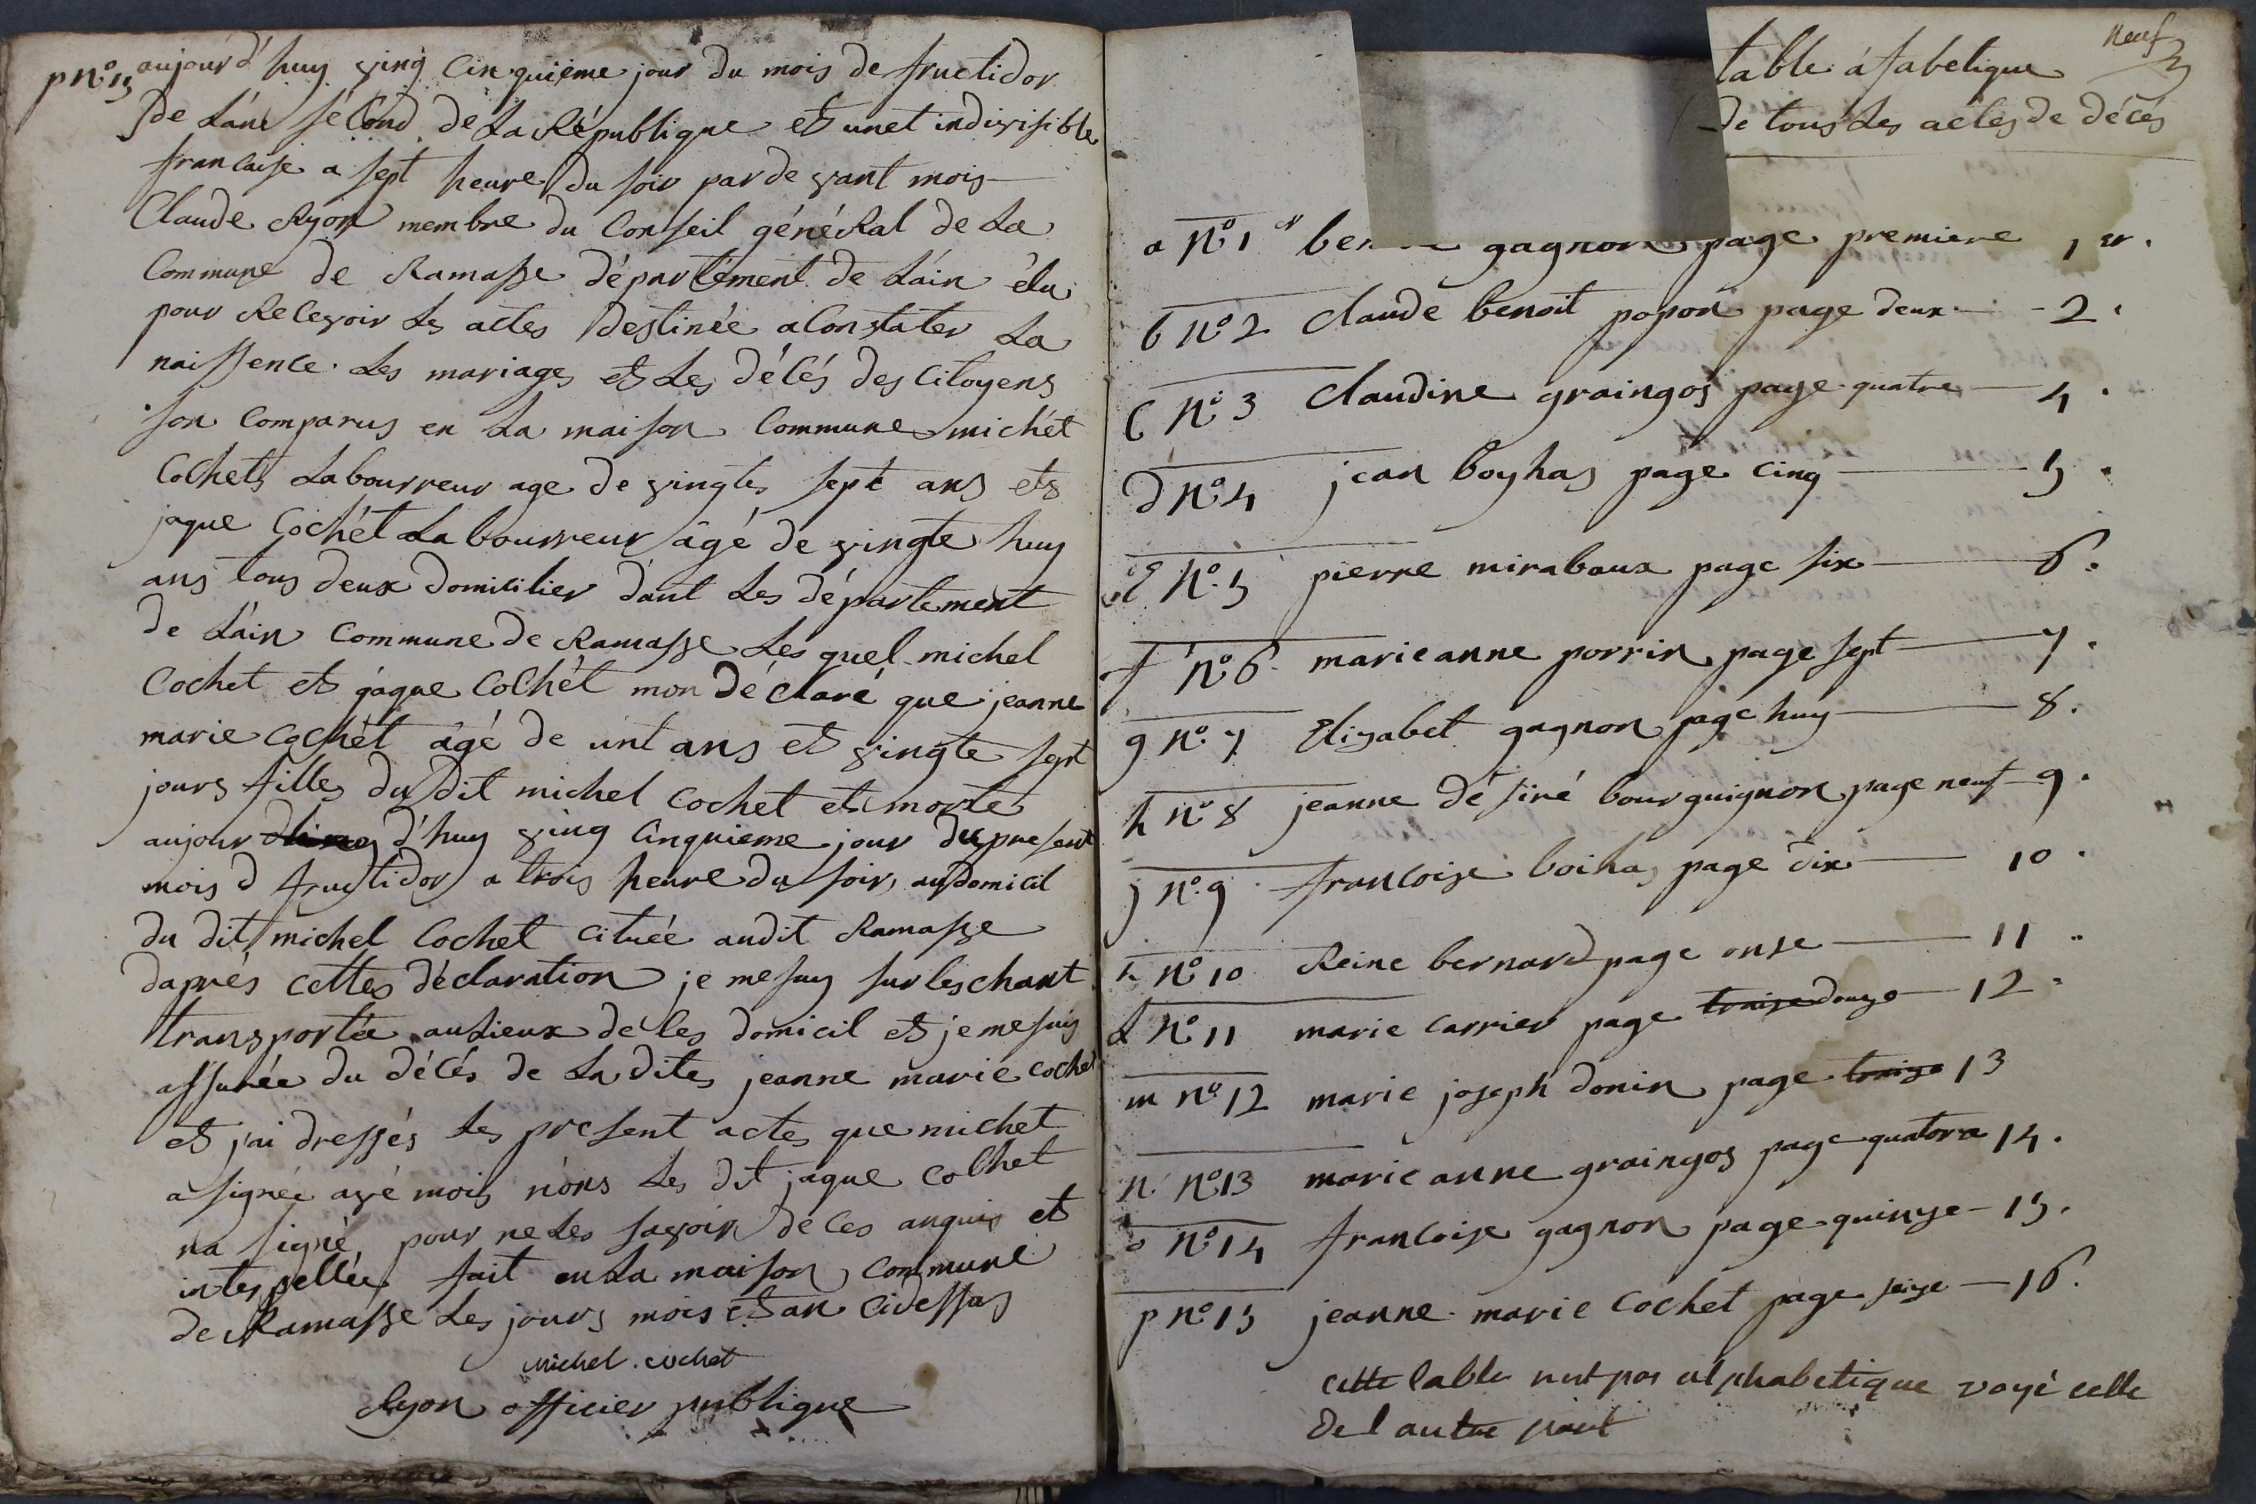 p n.o 15 aujourd'huy ving cinquiéme jour du mois de fructidor
de L'áne sécond de La République et unet indivisible
francaise a sept heure du soir par de vant mois
Claude Ryon membre du Conseil généRal de La
Commune de Ramasse département de L'áin élu
pour Recevoir Les actes destinée a Constater La
naissence. Les mariages et Les décés des Citoyens
son Comparus en La maison Commune michet
Cochets Labourreur age de vingtes sept ans et
jaque Cochét Labourreur âgé de vingte huy
ans tous deux domicilier dant Les département
de L'áin Commune de Ramasse Les quel michel
Cochet et jáque Cochét mon déclaré que jeanne
marie Cochét âgé de unt ans et vingte sept
jours filles du dit michel Cochet et morte
aujour d'huy ving Cinquieme jour du present
mois d fructidor a trois heure du soir, au domicil
du dit michel Cochet cituée audit Ramasse
daprés cettes déclaration je me suy sur les chant
transportée au Lieux de les domicil et je me suis
assurée du décés de La dites jeanne marie Cochet
et jai dressés Les present actes que michet
a signée avé mois nons Les dit jaque Colhet
na signé, pour ne Les savoir de ces anquis et
interpellée fait en La maison Commune
de Ramasse Les jours mois et an cidessus
michel . cochet
Ryon officier publique
neuf
table áfabetique
de tous Les actes de décés
a n.o 1er gagnon page premiere 1er.
b n.o 2 Claude benoit popon page deux - 2.
C n.o 3 Claudine graingos page quatre - 4.
d n.o 4 jean boyhas page cinq - 5.
E n.o 5 pierre miraboux page six - 6.
f n.o 6 marie anne porrin page sept - 7.
g n.o 7 Elizabet gagnon page huy - 8.
h n.o 8 jeanne désiré bourguignon page neuf 9.
j n.o 9 francoise boihas page dix - 10.
n.o 10 Reine bernard page onse - 11
L n.o 11 marie carrier page traize douze - 12
m n.o 12 marie joseph donin page traize 13
n n.o 13 marie anne graingos page quatorze 14.
o n.o 14 francoise gagnon page quinze - 15.
p n.o 15 jeanne marie Cochet page seize - 16.
cette table nest pas alphabetique voyé celle
de l autre part